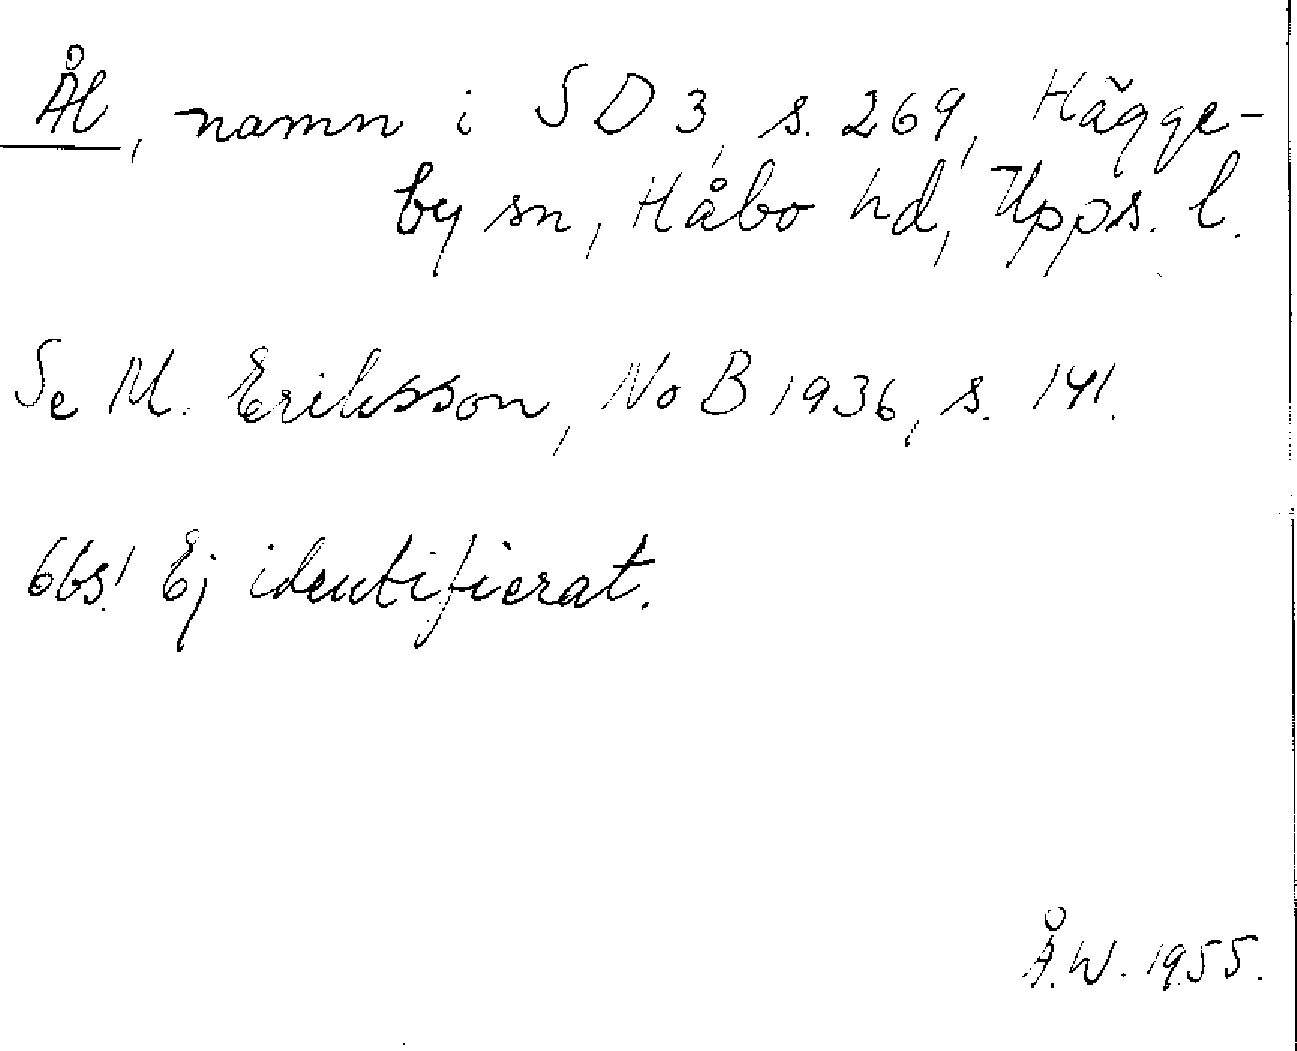 Ål, namn i SD 3, s. 269, Hägge-
by sn, Håbo hd, Upps. l.
Se M. Eriksson, NoB 1936, s. 141.
Obs! Ej identifierat.
Å.W. 1955.